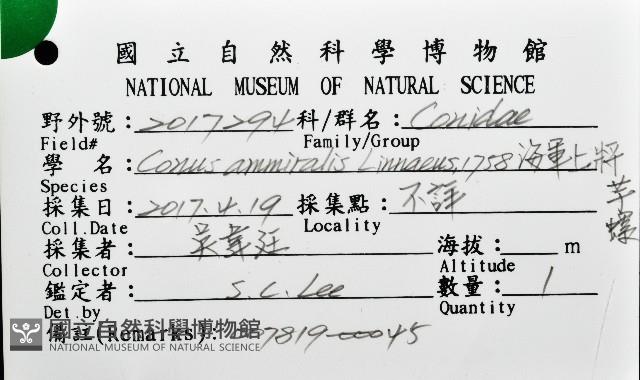 國立自然科學博物館
NATIONAL MUSEUM OF NATURAL SCIENCE
野外號：2017294 科/群名：Conidae
Field# Family/Group
學 名：Conus ammiralis Linnaeus, 1758 海軍上將芋螺
Species
採集日：2017.4.19 採集點：不詳
Coll.Date Locality
採集者：吳 廷 海拔： m
Collector Altitude
鑑定者：S.C. Lee 數量：1
Det.by Quantity
備註(Remarks): 7819-00045
國立自然科學博物館
NATIONAL MUSEUM OF NATURAL SCIENCE